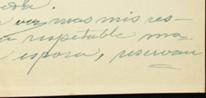 vez mas mis res-
a respetable ma
esposa, reservan